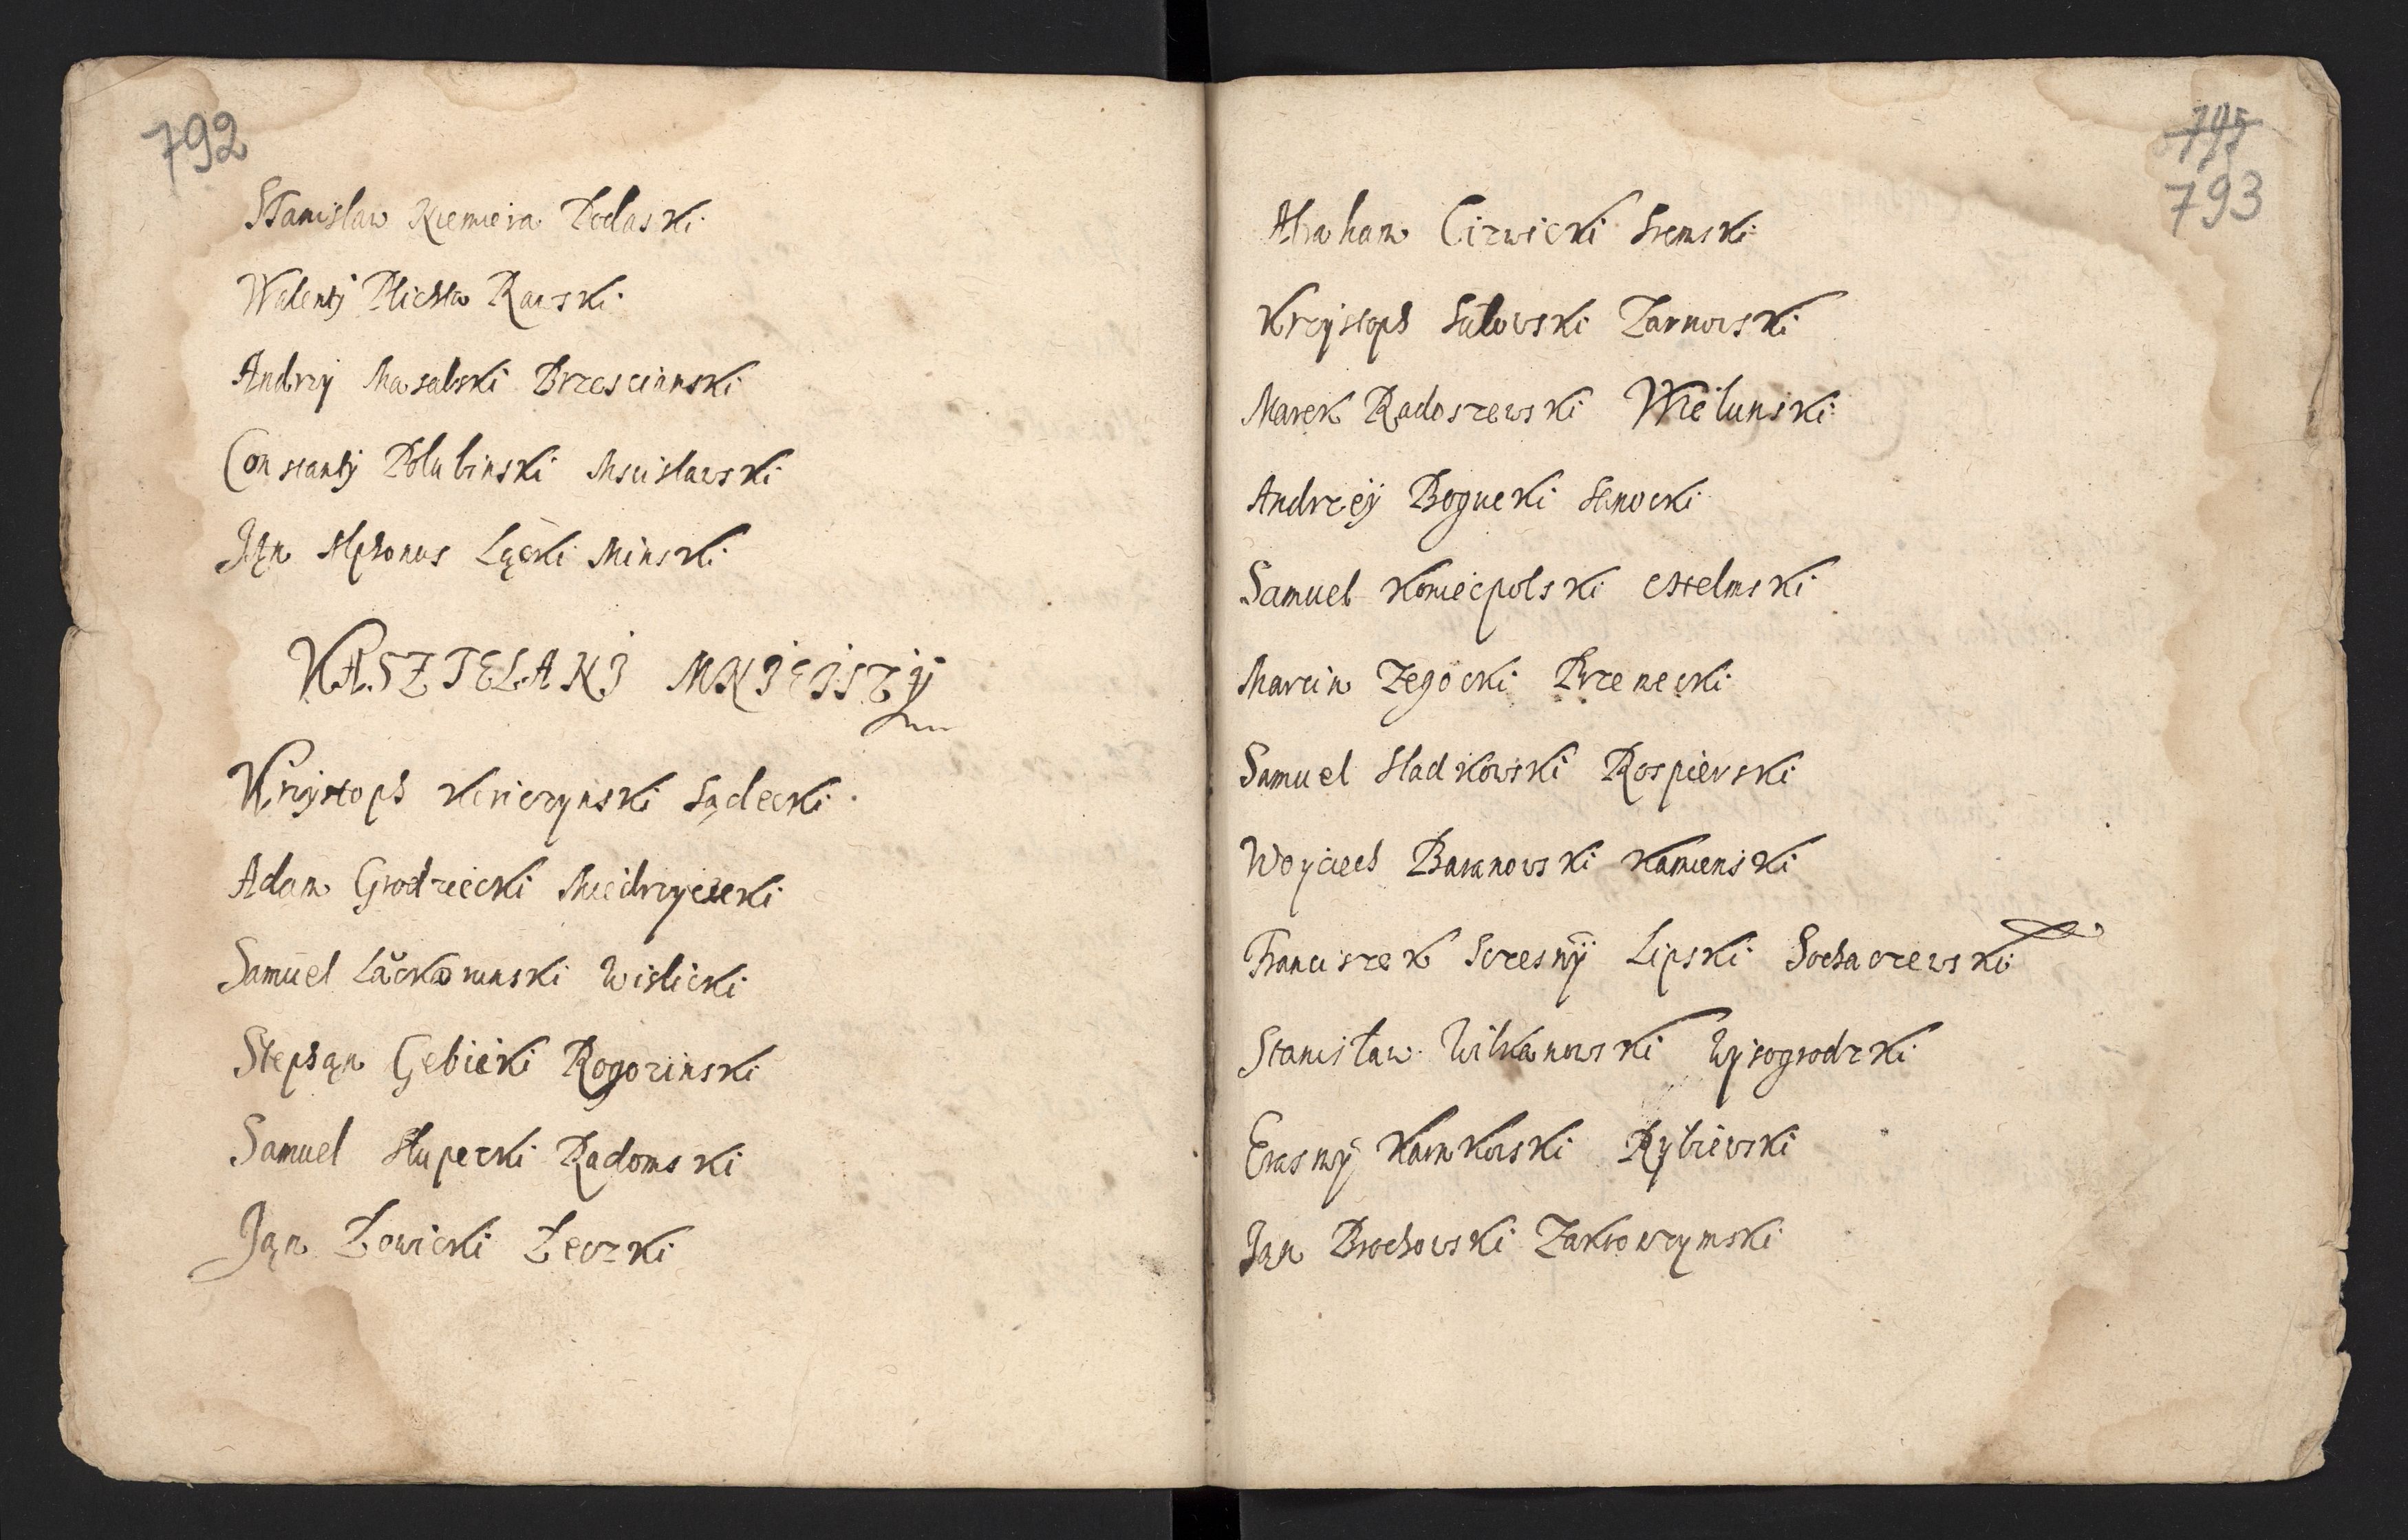 792
Stanislaw Niemiera Podlaski
Walenty Plichta Rawski
Andrzy Masalski Brzescianski
Constanty Polubinski Mscislawski
Jąn Alphonus Lącki Minski
KASZTELANI MNIEISZY
Krzysztoph Koriczynski Sądecki
Adam Grodziecki Miedzyrzecki
Samuel Lackoronski Wislicki
Stephąn Gębicki Rogozinski
Samuel Słupecki Radomski
Jąn Łowicki
745
793
Abraham Cizwicki Sremski
Krzysztoph Sulowski Zarnowski
Marek Radoszewski Wielunski
Andrzeÿ Bogucki Sanocki
Samuel Koniecpolski Chelmski
Marcin Zegocki Przemecki
Samuel Sladkowski Rospierski
Woyciech Baranowski Kamienski
Franciszek Sczesnÿ Lipski Sochaczewski
Stanisław Wilkanowski Wysogrodzki
Erasmÿ Karnkowski Rypiewski
Jąn Brochowski Zakroczymski